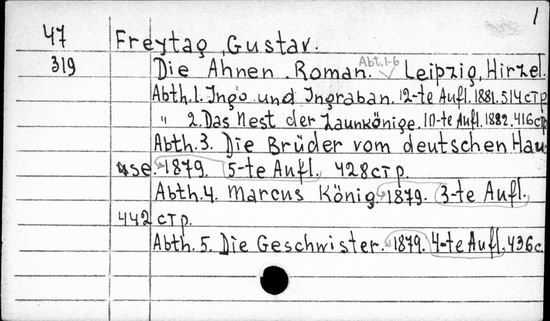 1
47 Freytag, Gustav.
319 Die Ahnen. Roman. Abt. 1-6 Leipzig, Hirzel.
Abth. 1. Ingo und Ingraban. 12-te Aufl. 1881. 514 стр
" 2. Das Nest der Zaunkönige. 10-te Aufl. 1882. 416 стр
Abth. 3. Die Brüder vom deutschen Hau-
se. 1879. 5-te Aufl. 428 стр.
Abth. 4. Marcus König. 1879. 3-te Aufl.
442 стр.
Abth. 5. Die Geschwister. 1879. 4-te Aufl. 436 с.